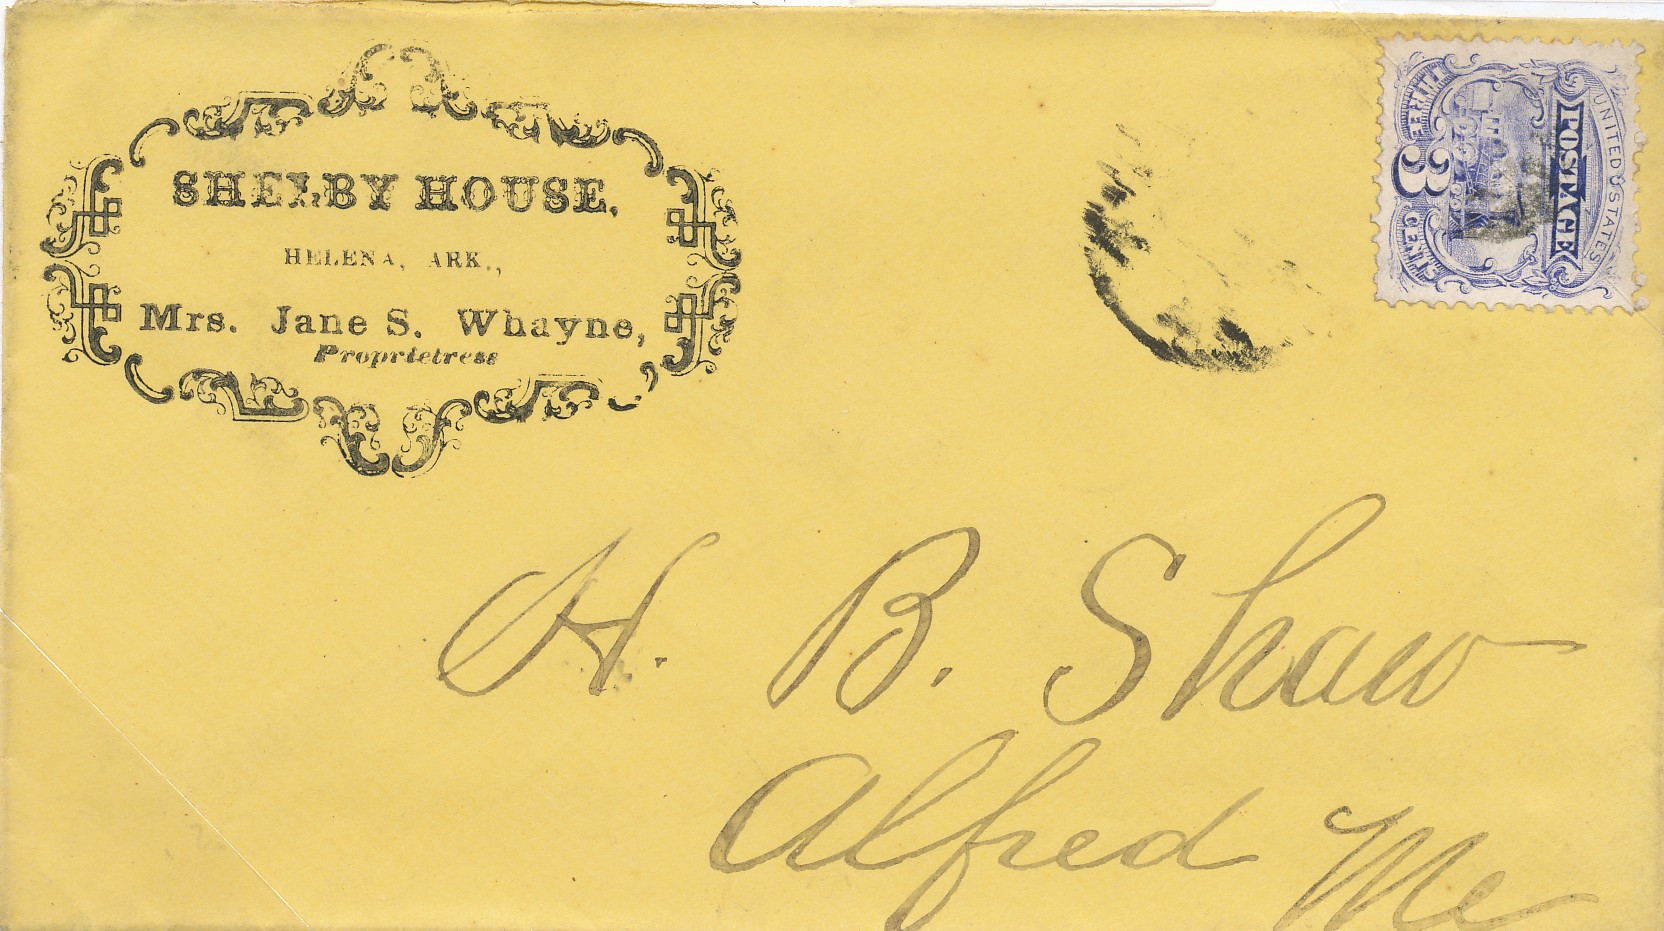 SHELBY HOUSE,
HELENA, ARK.,
Mrs. Jane S. Whayne,
Proprietress
UNITED STATES
POSTAGE
THREE 3 CENTS
H. B. Shaw
Alfred Me